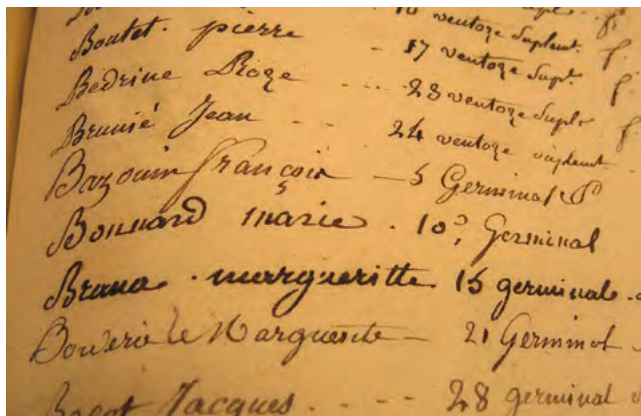 Boutet. pierre - 17 ventoze Suplt. f
Bédrine Roze - - - 23 ventoze Suplt f
Brunié Jean - - - 24 ventoze
Bazouin françois - 5 Germinal
Bonnard marie . 10 Germinal
Brana . margueritte 15 germinale
Marguerite - 21 Germinal
Jacques . - - - 28 germinal